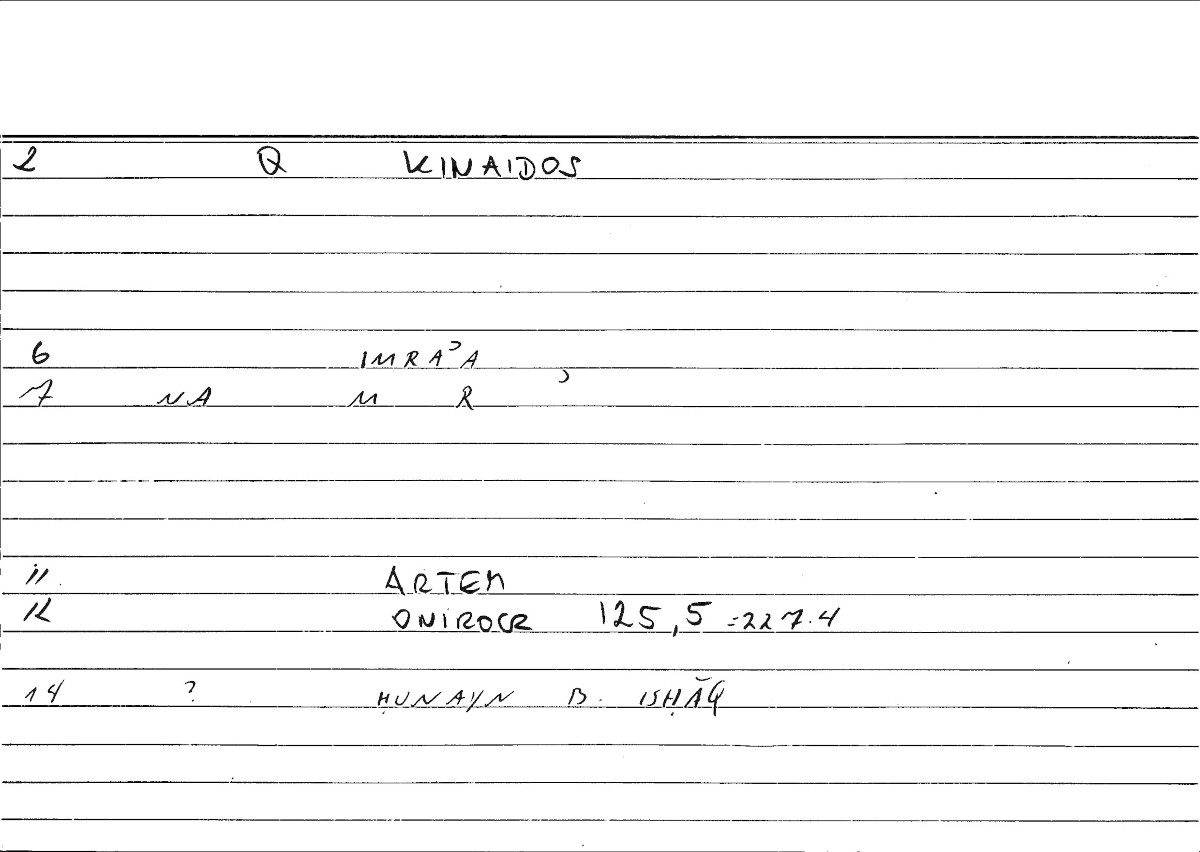 2 Q KINAIDOS
6 IMRAʾA
7 NA M R ʾ
11 ARTEM
12 ONIROCR 125,5 =227.4
14 ? ḤUNAYN B. ISḤĀQ